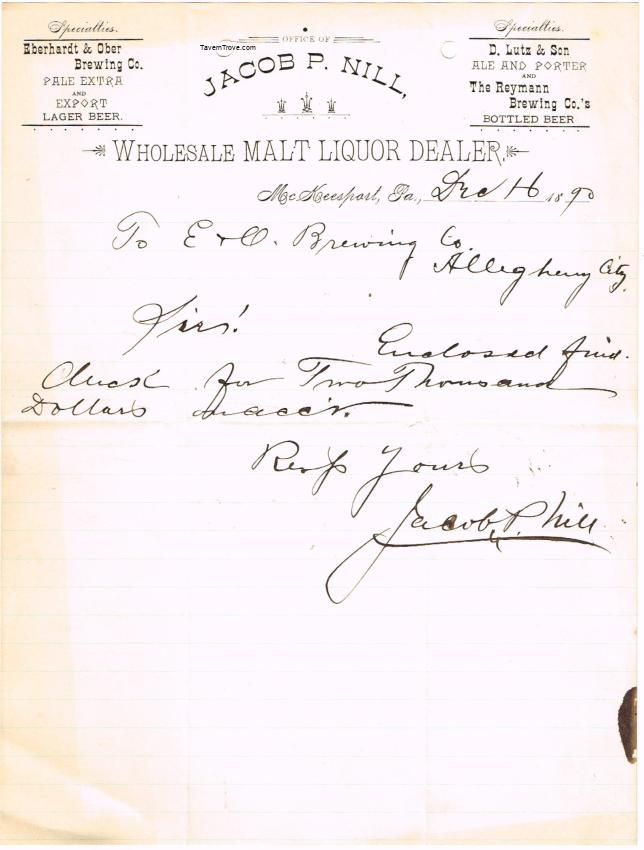 Specialties.
Eberhardt & Ober
Brewing Co.
PALE EXTRA
AND
EXPORT
LAGER BEER.
TavernTrove.com
OFFICE OF
JACOB P. NILL,
Specialties.
D. Lutz & Son
ALE AND PORTER
AND
The Reymann
Brewing Co.'s
BOTTLED BEER
WHOLESALE MALT LIQUOR DEALER.
McKeesport, Pa., Dec 16 1890
To E & O. Brewing Co.
Allegheny City.
Sirs!
Enclosed find.
check for Two Thousand
Dollars on acc't.
Resp Yours
Jacob P. Nill